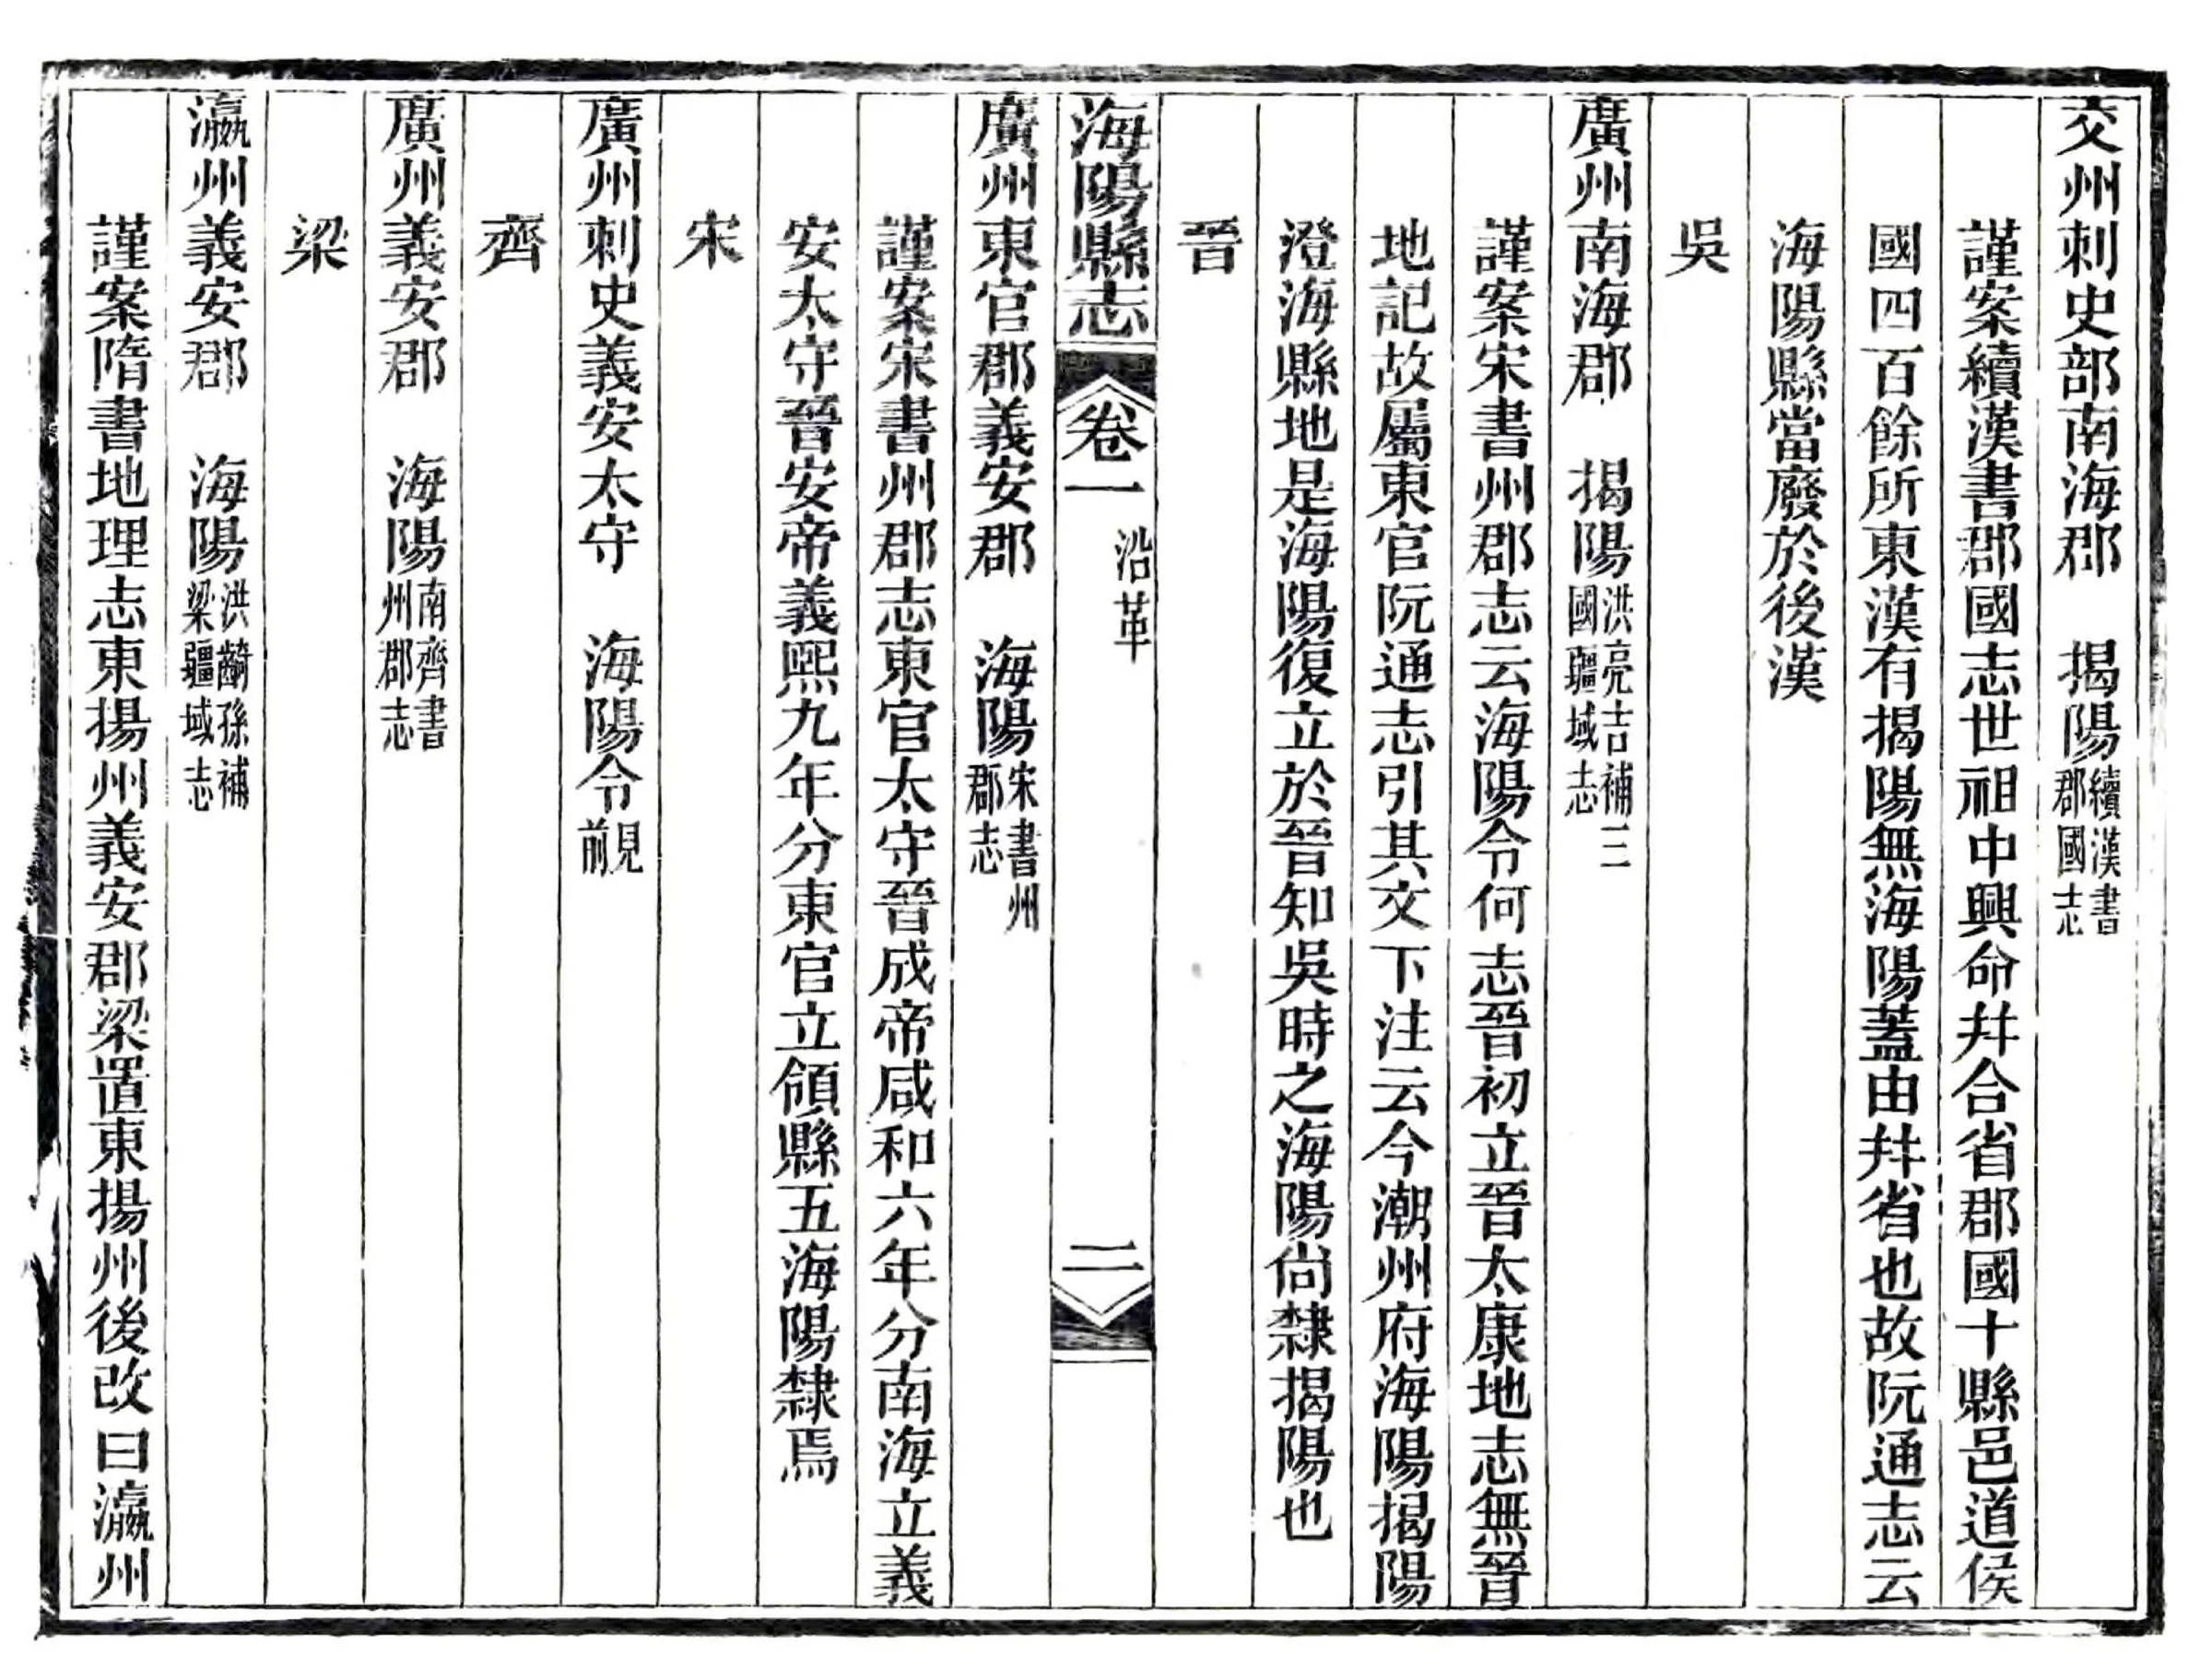 交州刺史部南海郡　揭陽續漢書郡國志
謹案續漢書郡國志世祖中興命幷合省郡國十縣邑道侯
國四百餘所東漢有揭陽無海陽蓋由幷省也故阮通志云
海陽縣當廢於後漢
吳
廣州南海郡　揭陽洪亮吉補三國疆域志
謹案宋書州郡志云海陽令何志晉初立晉太康地志無晉
地記故屬東官阮通志引其文下注云今潮州府海陽揭陽
澄海縣地是海陽復立於晉知吳時之海陽尙隸揭陽也
晉
海陽縣志　卷一　沿革　二
廣州東官郡義安郡　海陽宋書州郡志
謹案宋書州郡志東官太守晉成帝咸和六年分南海立義
安太守晉安帝義熙九年分東官立領縣五海陽隸焉
宋
廣州刺史義安太守　海陽令見前
齊
廣州義安郡　海陽南齊書州郡志
梁
瀛州義安郡　海陽洪齮孫補梁疆域志
謹案隋書地理志東揚州義安郡梁置東揚州後改曰瀛州